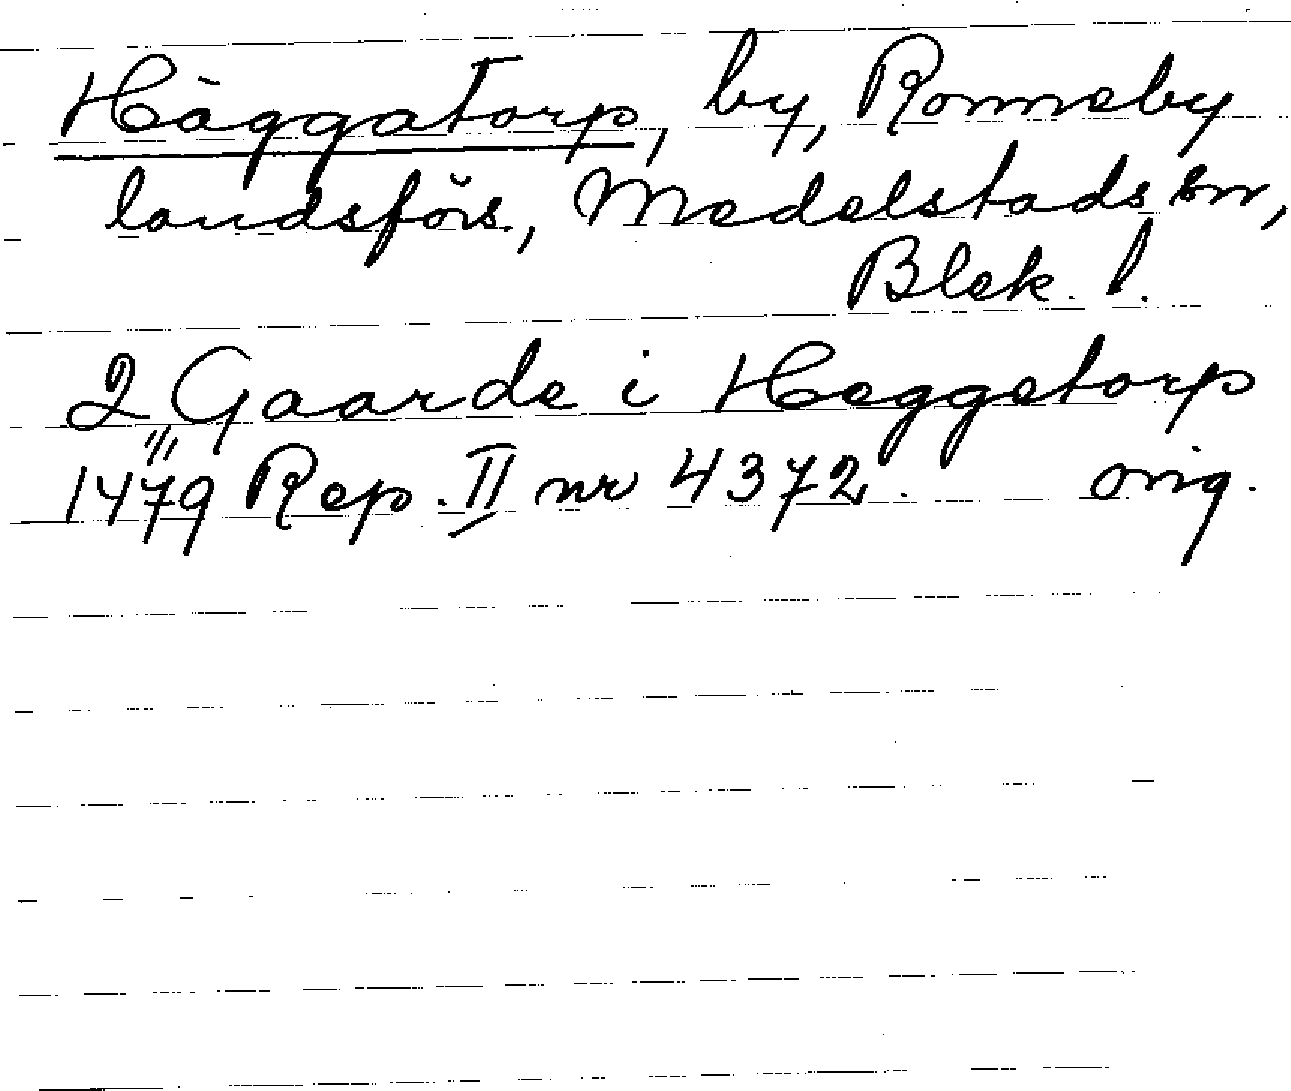 Häggatorp, by, Ronneby
landsförs., Medelstads hr,
Blek. l.
2 Gaarde i Heggetorp
1479 Rep. II nr 4372. orig.